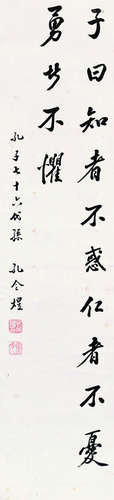 子曰知者不惑仁者不憂
勇者不懼
孔子七十六代孫 孔令煜